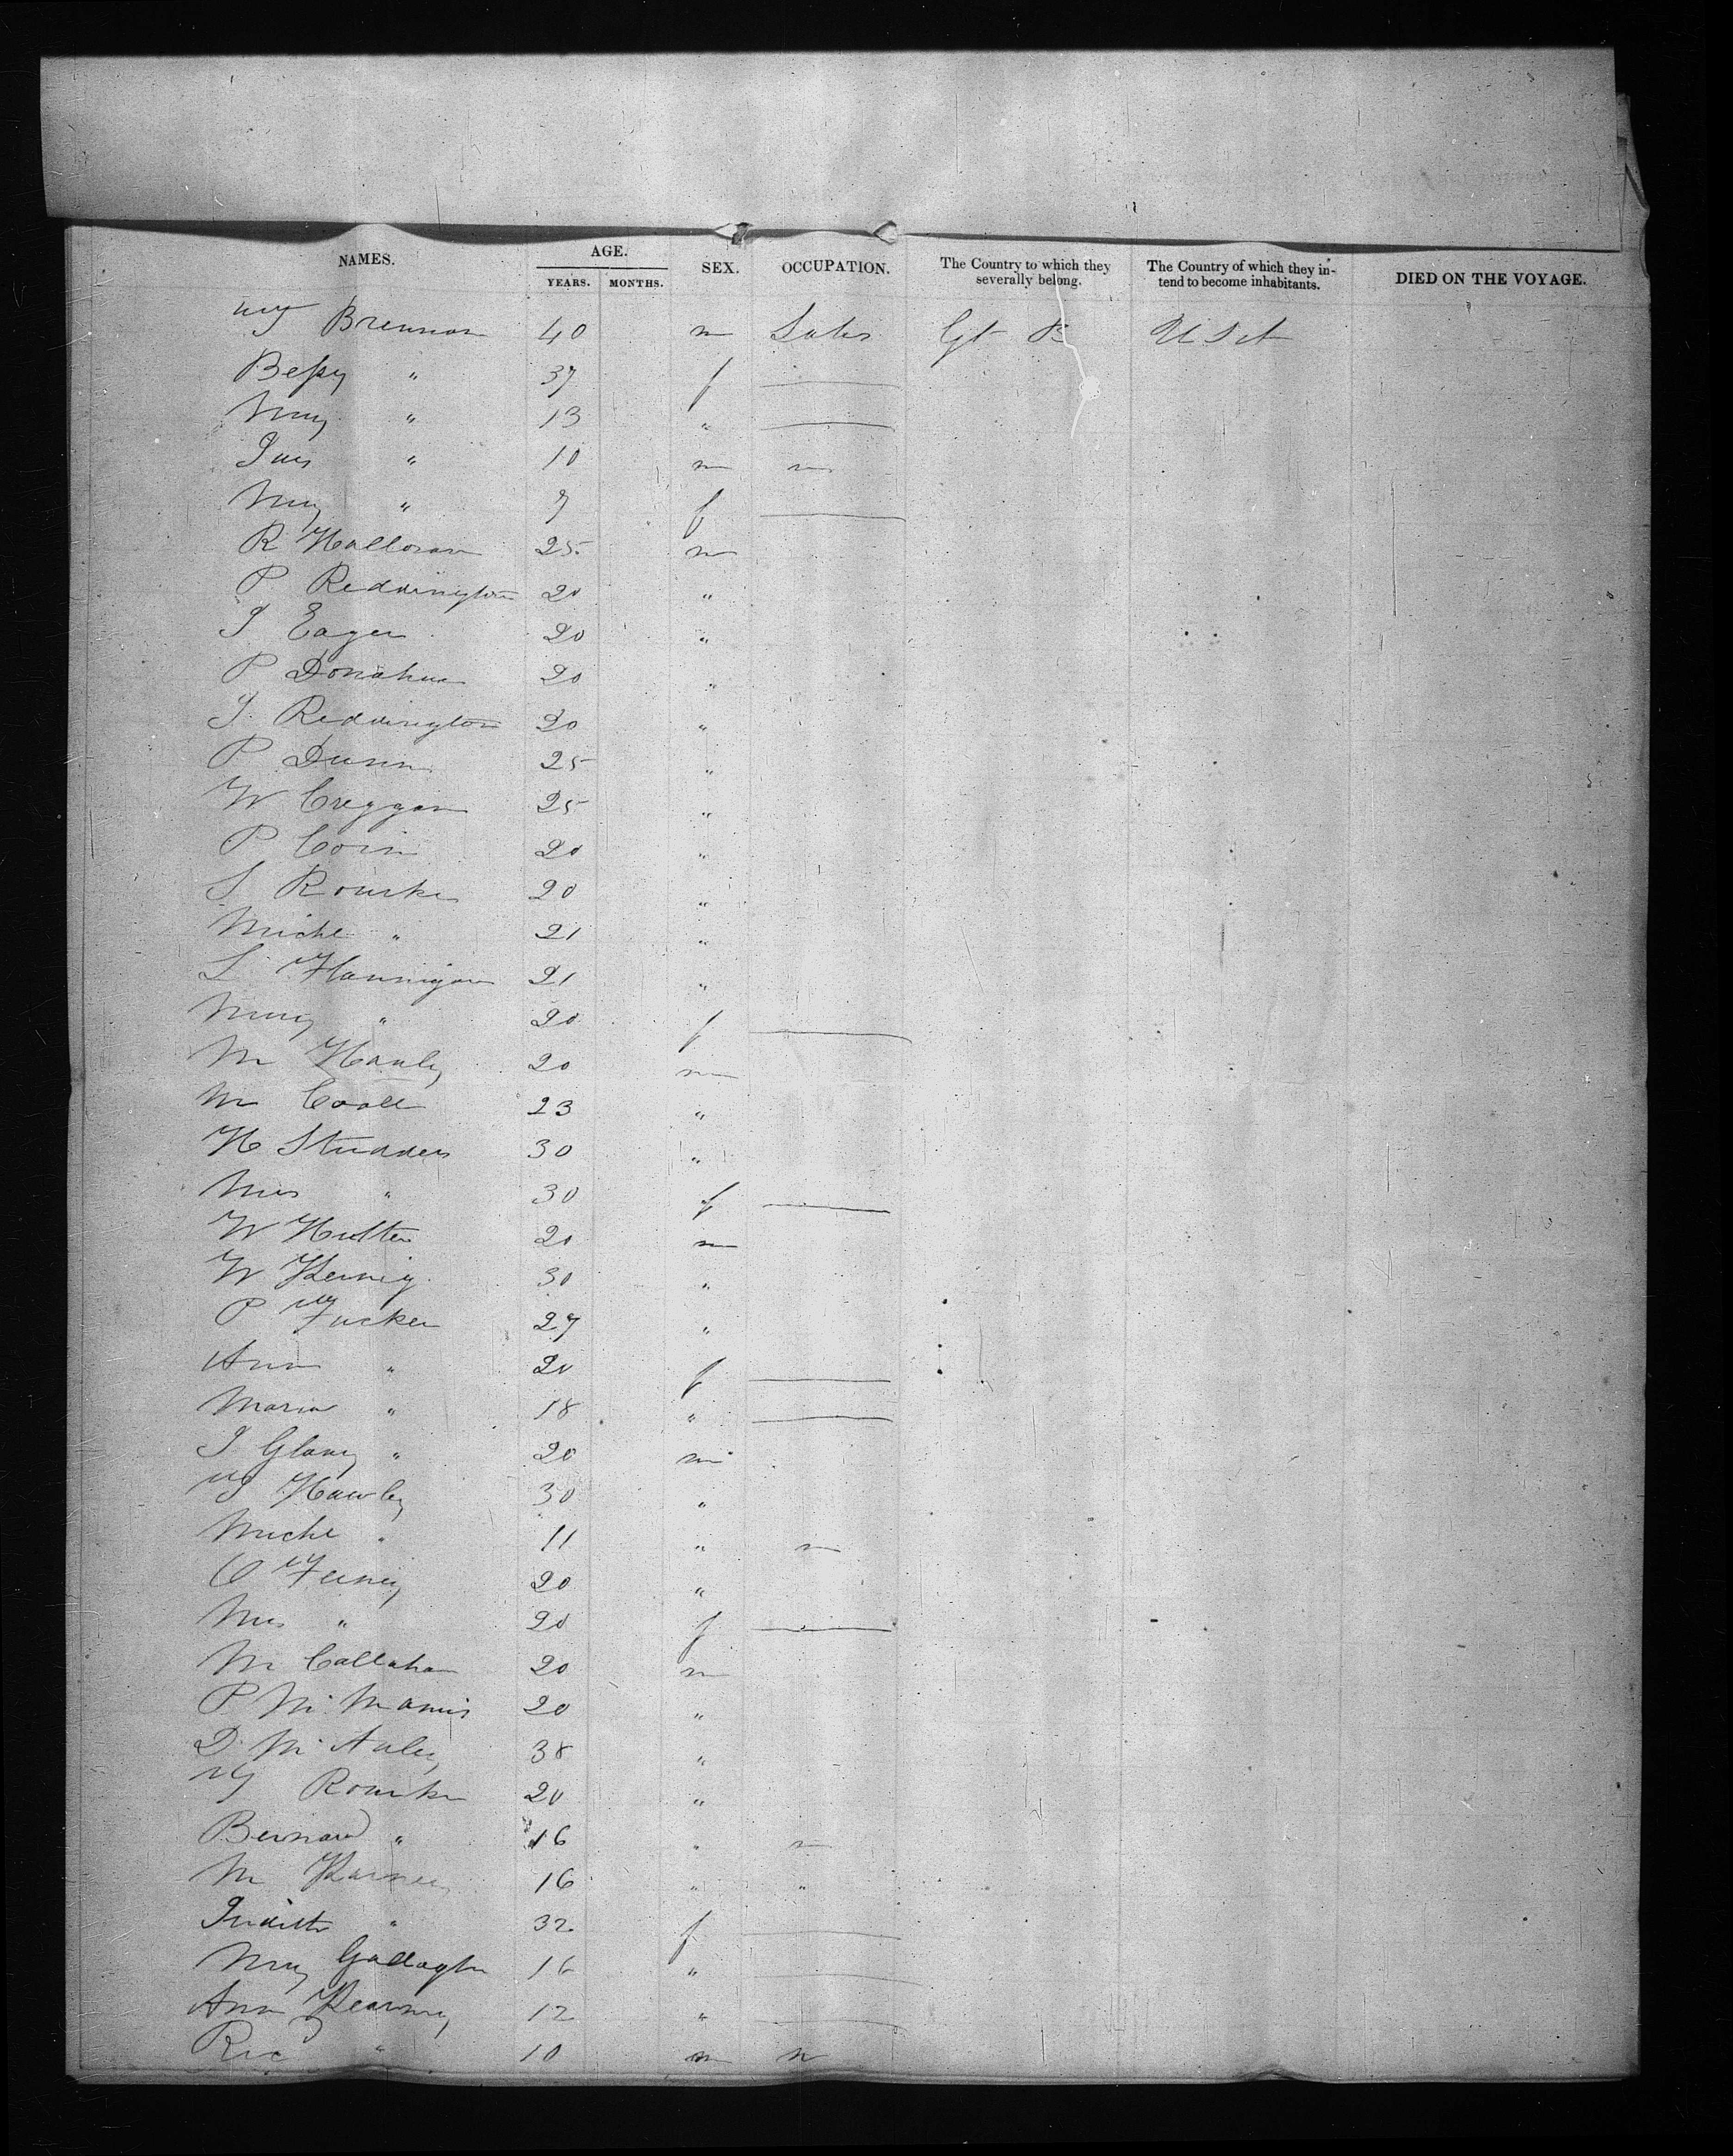 NAMES. AGE. SEX. OCCUPATION. The Country to which they severally belong. The Country of which they intend to become inhabitants. DIED ON THE VOYAGE.
YEARS. MONTHS.
Brennan 40 m Gt B U St
Bessy " 37 f
Mary " 13 "
" 10 m
Mary " 7 f
R Halloran 25 m
P Reddington 20 "
Eagen 20 "
P Donahue 20 "
J. Reddington 20 "
P Dunn 25 "
W Creggan 25 "
P Coin 20 "
S Rourke 20 "
Michl " 21 "
L Flannigan 21 "
Mary " 20 f
M Hanley 20 m
M Coall 23 "
H Studders 30 "
Mrs " 30 f
W Hutten 20 m
W Kernig 30 "
P Tucker 27 "
Ann " 20 f
Maria " 18 "
J Glany " 20 m
Hawley 30 "
Michl " 11 "
O Feeney 20 "
Mrs " 20 f
M Callahan 20 m
P Mc Manus 20 "
D. Mc Auley 38 "
Rourke 20 "
Bernard " 16 "
M 16 " "
Judith " 32 f
Mary Gallagher 16 "
Ann Kearney 12 "
Ricd " 10 m